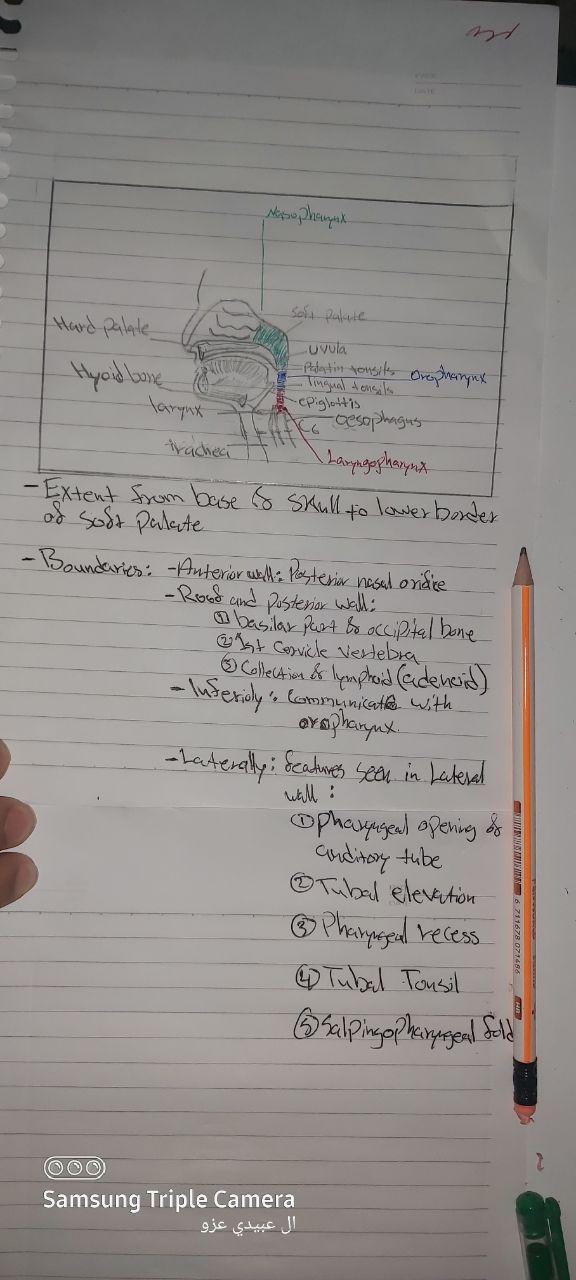 Nasopharynx
Soft palate
Hard palate
uvula
Palatin tonsils
Oropharynx
Hyoid bone
Tingual tonsils
epiglottis
larynx
oesophagus
C6
trachea
Laryngopharynx
- Extent from base of skull to lower border
of soft palate
- Boundaries: - Anterior wall: Posterior nasal orifice
- Roof and posterior wall:
① basilar part of occipital bone
② 1st cervicle vertebra
③ Collection of lymphoid (adenoid)
- Inferioly: communicate with
oropharynx.
- Laterally: features seen in Lateral
wall:
① pharyngeal opening of
auditory tube
② Tubal elevation
③ Pharyngeal recess
④ Tubal Tonsil
⑤ Salpingopharyngeal fold
6 711678 071486
HB
Samsung Triple Camera
ال عبيدي عزو